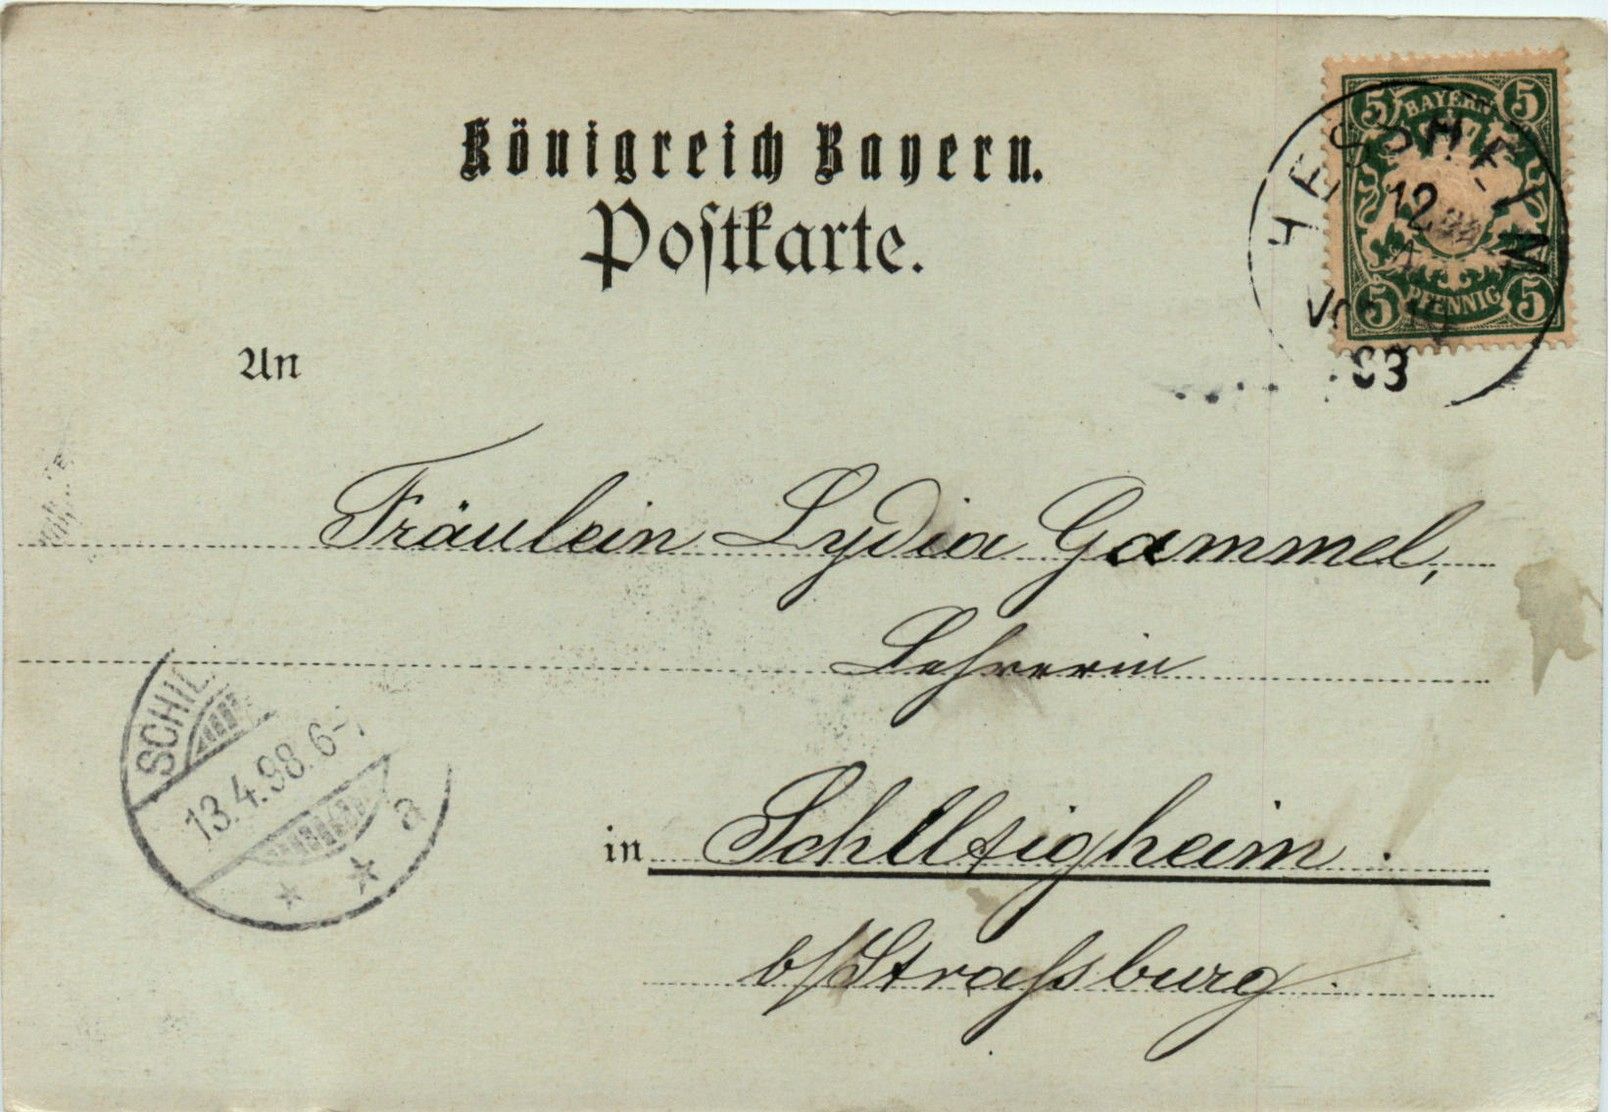 Königreich Bayern.
Postkarte.
5 BAYERN 5
5 PFENNIG 5
HESSHEIM
12
An
Fräulein Lydia Gammel,
Lehrerin
in Schiltigheim.
b/Straſsburg.
SCHIL
13.4.98.6-7
a